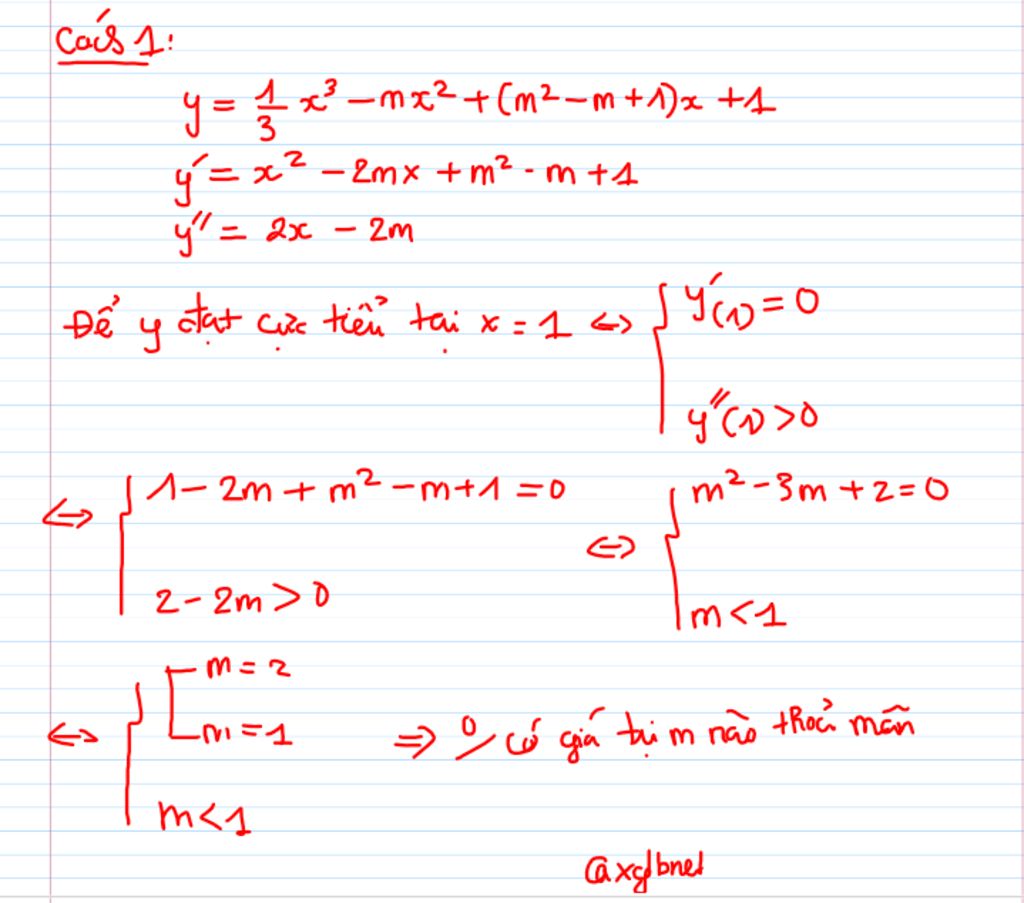 Cách 1:
y = 1/3 x³ - mx² + (m² - m + 1)x + 1
y' = x² - 2mx + m² - m + 1
y'' = 2x - 2m
Để y đạt cực tiểu tại x = 1 ⇔ { y'(1) = 0
y''(1) > 0
⇔ { 1 - 2m + m² - m + 1 = 0 ⇔ { m² - 3m + 2 = 0
2 - 2m > 0 m < 1
⇔ { [ m = 2
m = 1 ⇒ 0/ có giá trị m nào thoả mãn
m < 1